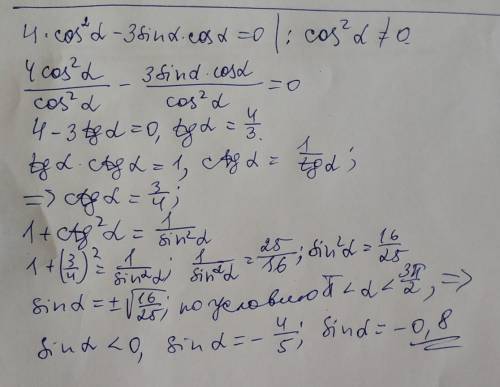 4·cos²α − 3sinα·cosα = 0 | : cos²α ≠ 0.
4cos²α/cos²α − 3sinα·cosα/cos²α = 0
4 − 3tgα = 0, tgα = 4/3.
tgα · ctgα = 1, ctgα = 1/tgα;
=> ctgα = 3/4;
1 + ctg²α = 1/sin²α
1 + (3/4)² = 1/sin²α; 1/sin²α = 25/16; sin²α = 16/25
sinα = ±√(16/25); по условию π < α < 3π/2, =>
sinα < 0, sinα = −4/5; sinα = −0,8